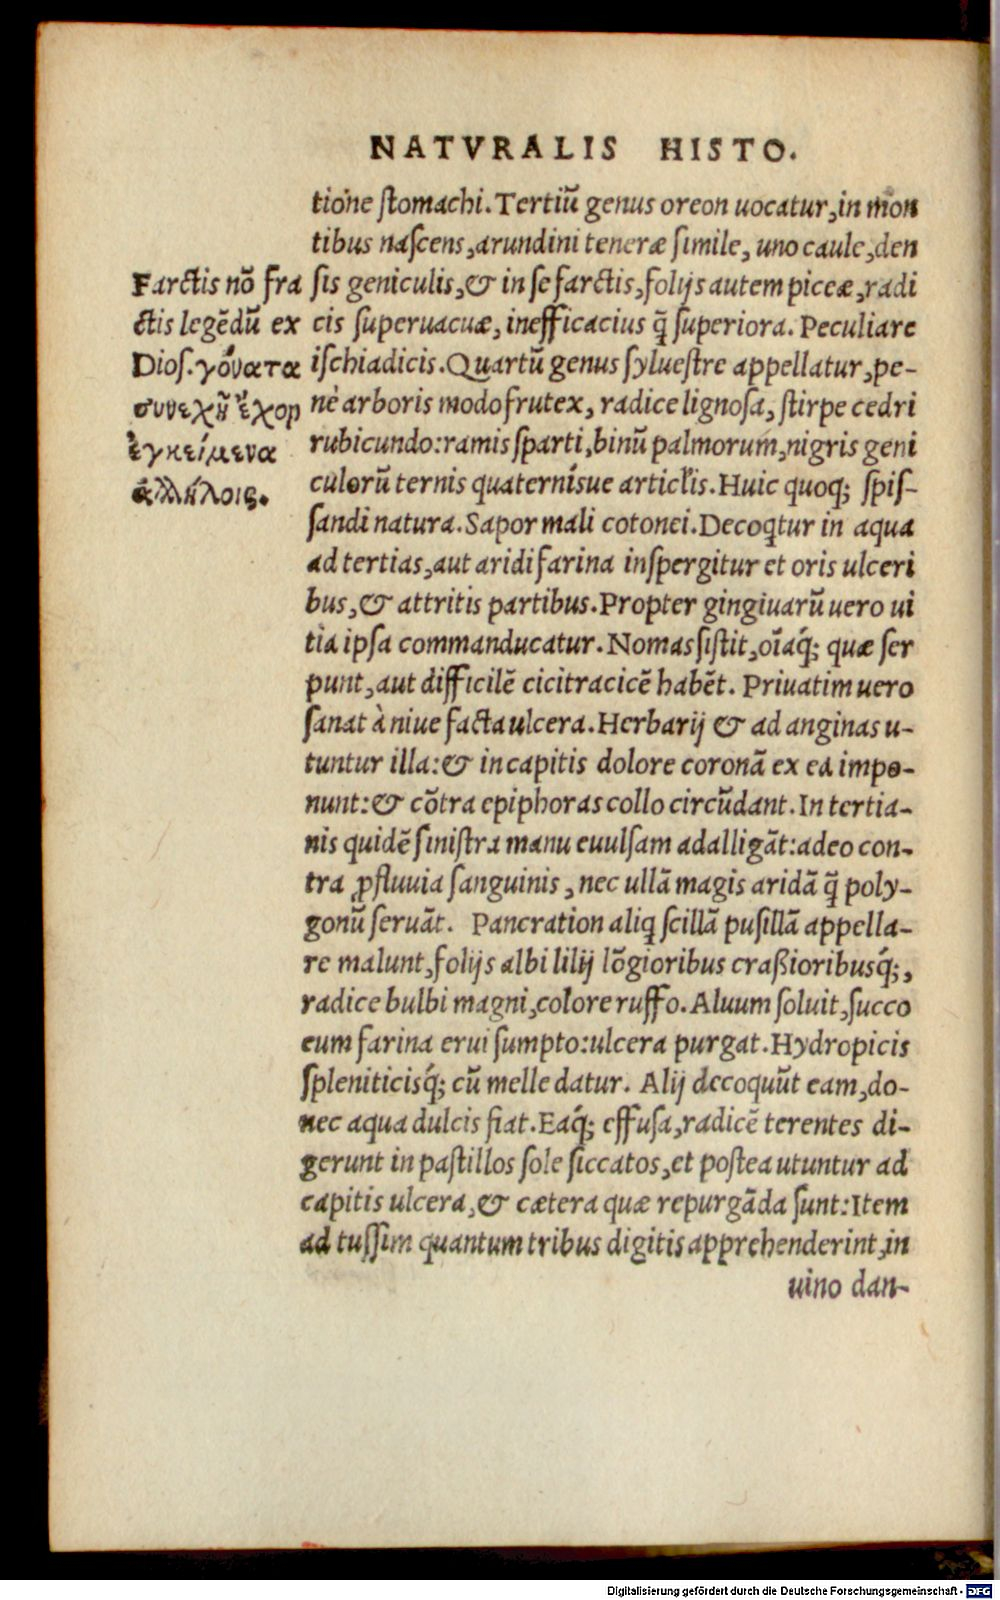 NATVRALIS HISTO.
tione ſtomachi. Tertiũ genus oreon uocatur, in mon
tibus naſcens, arundini teneræ ſimile, uno caule, den
ſis geniculis, & in ſe farctis, folijs autem piceæ, radi
cis ſuperuacuæ, inefficacius q̃ ſuperiora. Peculiare
iſchiadicis. Quartũ genus ſylueſtre appellatur, pe-
nè arboris modo frutex, radice lignoſa, ſtirpe cedri
rubicundo: ramis ſparti, binũ palmorum, nigris geni
culorũ ternis quaternísue articlis. Huic quoq; ſpiſ-
ſandi natura. Sapor mali cotonei. Decoq̃tur in aqua
ad tertias, aut aridi farina inſpergitur et oris ulceri
bus, & attritis partibus. Propter gingiuarũ uero ui
tia ipſa commanducatur. Nomas ſiſtit, oĩaq́; quæ ſer
punt, aut difficilẽ cicitracicẽ habẽt. Priuatim uero
ſanat à niue facta ulcera. Herbarij & ad anginas u-
tuntur illa: & in capitis dolore coronã ex ea impo-
nunt: & cõtra epiphoras collo circũdant. In tertia-
nis quidẽ ſiniſtra manu euulſam adalligãt: adeo con-
tra ꝓfluuia ſanguinis, nec ullã magis aridã q̃ poly-
gonũ ſeruãt. Pancration aliq̃ ſcillã puſillã appella-
re malunt, folijs albi lilij lõgioribus craßioribusq́;,
radice bulbi magni, colore ruffo. Aluum ſoluit, ſucco
cum farina erui ſumpto: ulcera purgat. Hydropicis
ſpleniticisq́; cũ melle datur. Alij decoquũt eam, do-
nec aqua dulcis fiat. Eaq́; effuſa, radicẽ terentes di-
gerunt in paſtillos ſole ſiccatos, et poſtea utuntur ad
capitis ulcera, & cætera quæ repurgãda ſunt: Item
ad tuſſim quantum tribus digitis apprehenderint, in
uino dan-
Farctis nõ fra
ctis legẽdũ ex
Dioſ. γόνατα
συνεχῆ ἔχον
ἐγκείμενα
ἀλλήλοις.
Digitalisierung gefördert durch die Deutsche Forschungsgemeinschaft - DFG